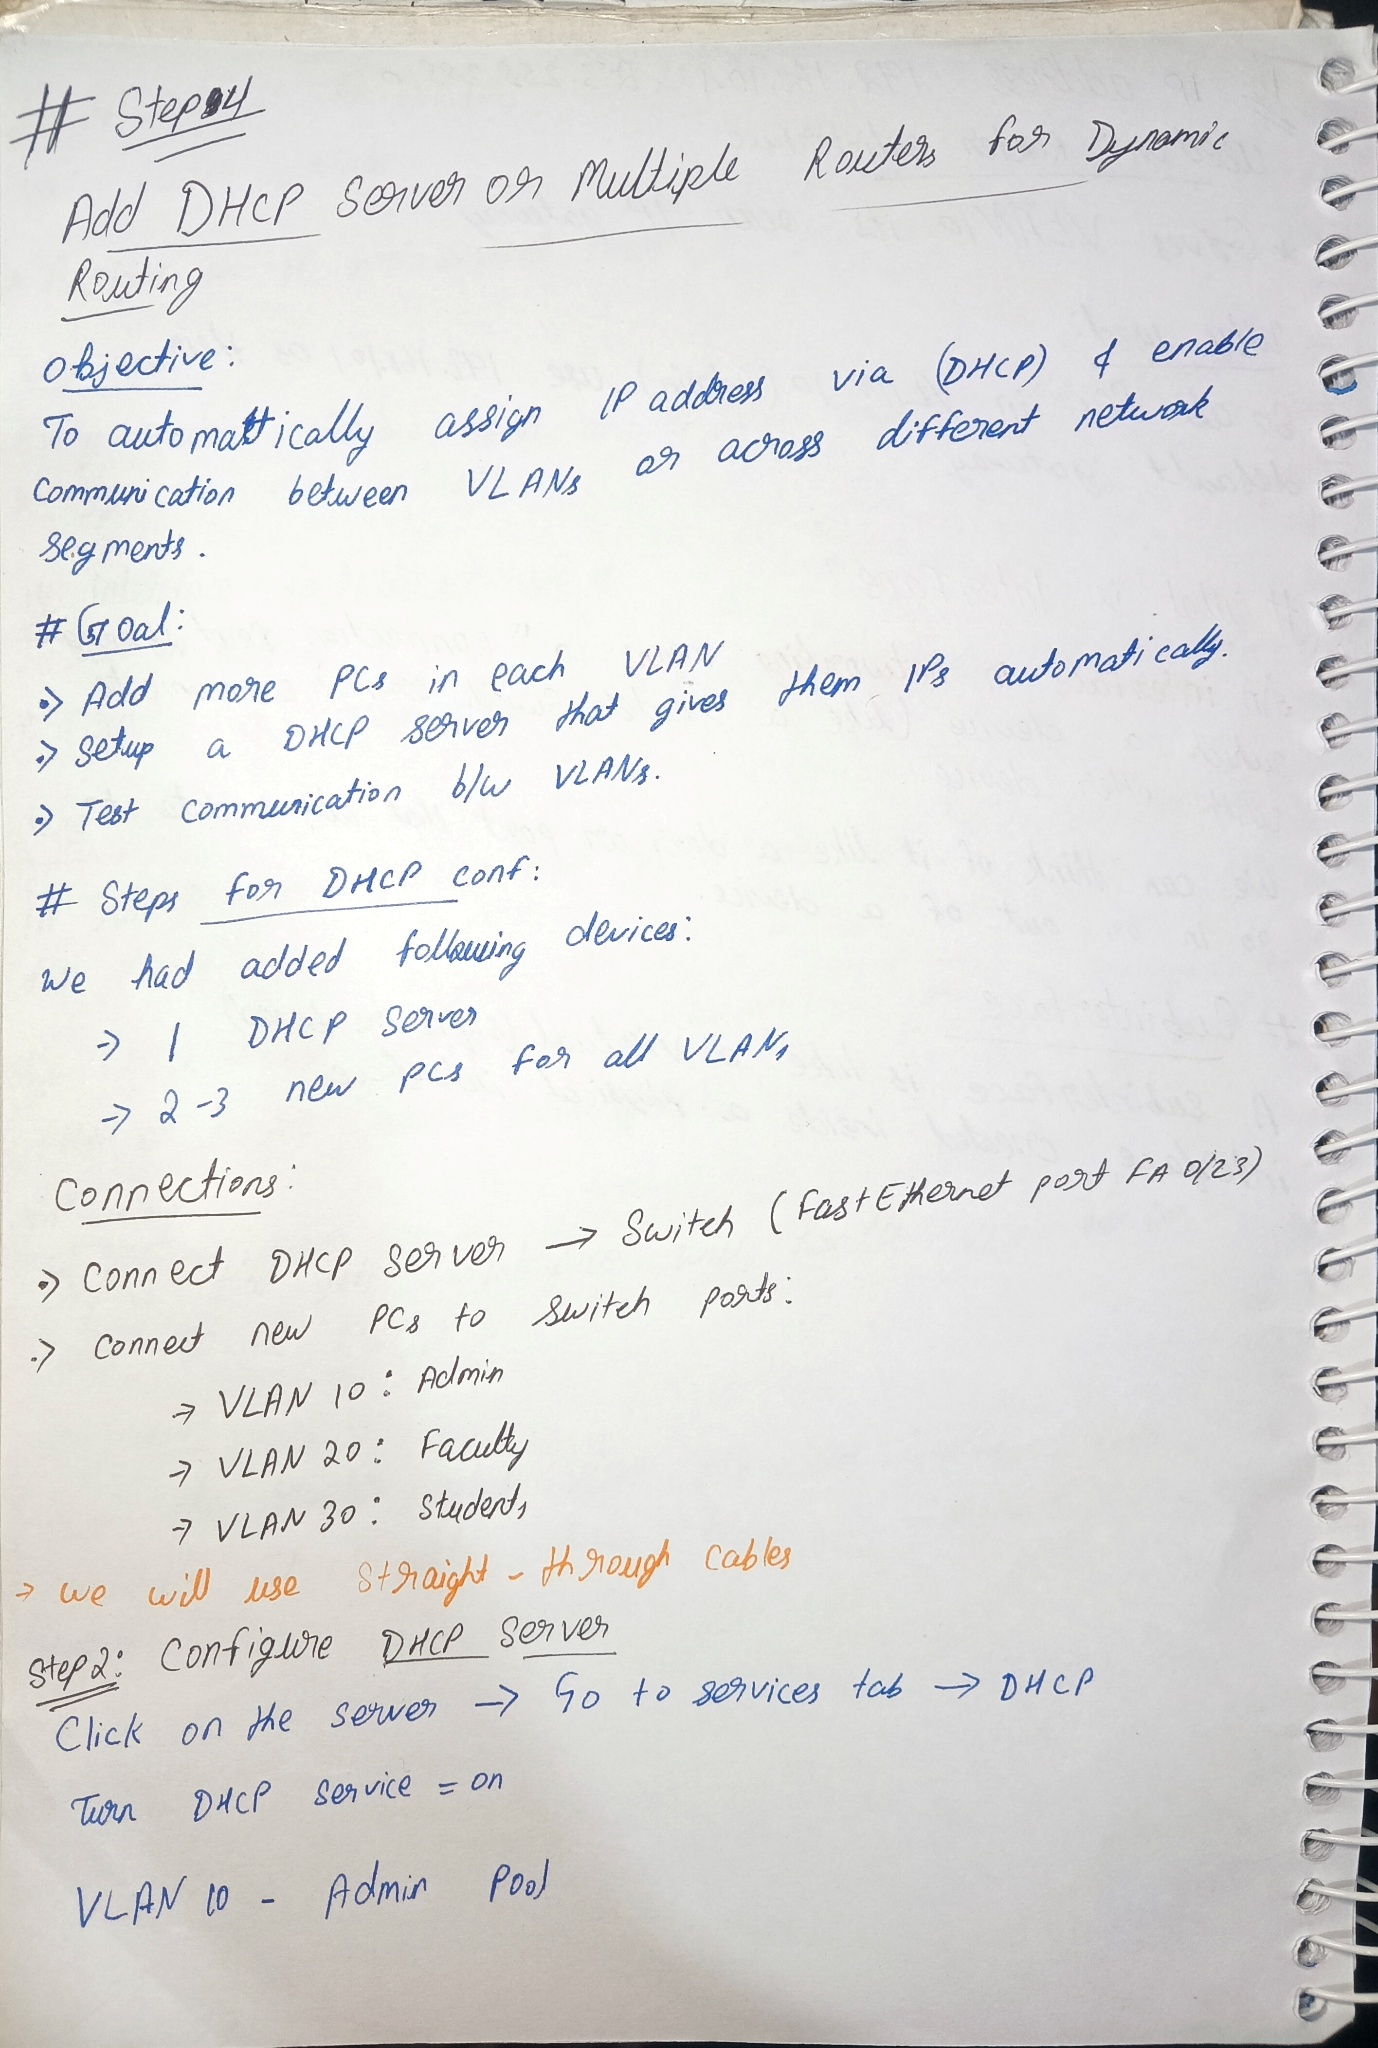 # Step 4
Add DHCP Server or Multiple Routers for Dynamic
Routing
Objective:
To automattically assign IP address via (DHCP) & enable
Communication between VLANs or across different network
segments.
# Goal:
•> Add more PCs in each VLAN
•> Setup a DHCP server that gives them IPs automatically.
•> Test Communication b/w VLANs.
# Steps for DHCP conf:
We had added following devices:
-> 1 DHCP Server
-> 2-3 new PCs for all VLANs
Connections:
•> Connect DHCP Server → Switch (FastEthernet port FA 0/23)
•> Connect new PCs to Switch ports:
-> VLAN 10: Admin
-> VLAN 20: Faculty
-> VLAN 30: Students
-> We will use Straight-through Cables
Step 2: Configure DHCP Server
Click on the server → Go to services tab → DHCP
Turn DHCP Service = on
VLAN 10 - Admin Pool